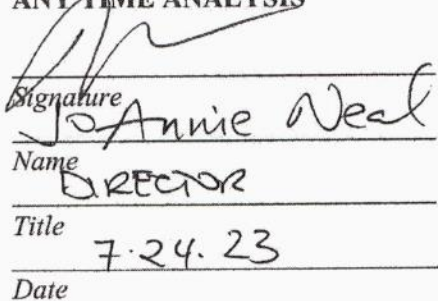 ANY TIME ANALYSIS
Signature
JoAnnie Neal
Name
DIRECTOR
Title
7.24.23
Date